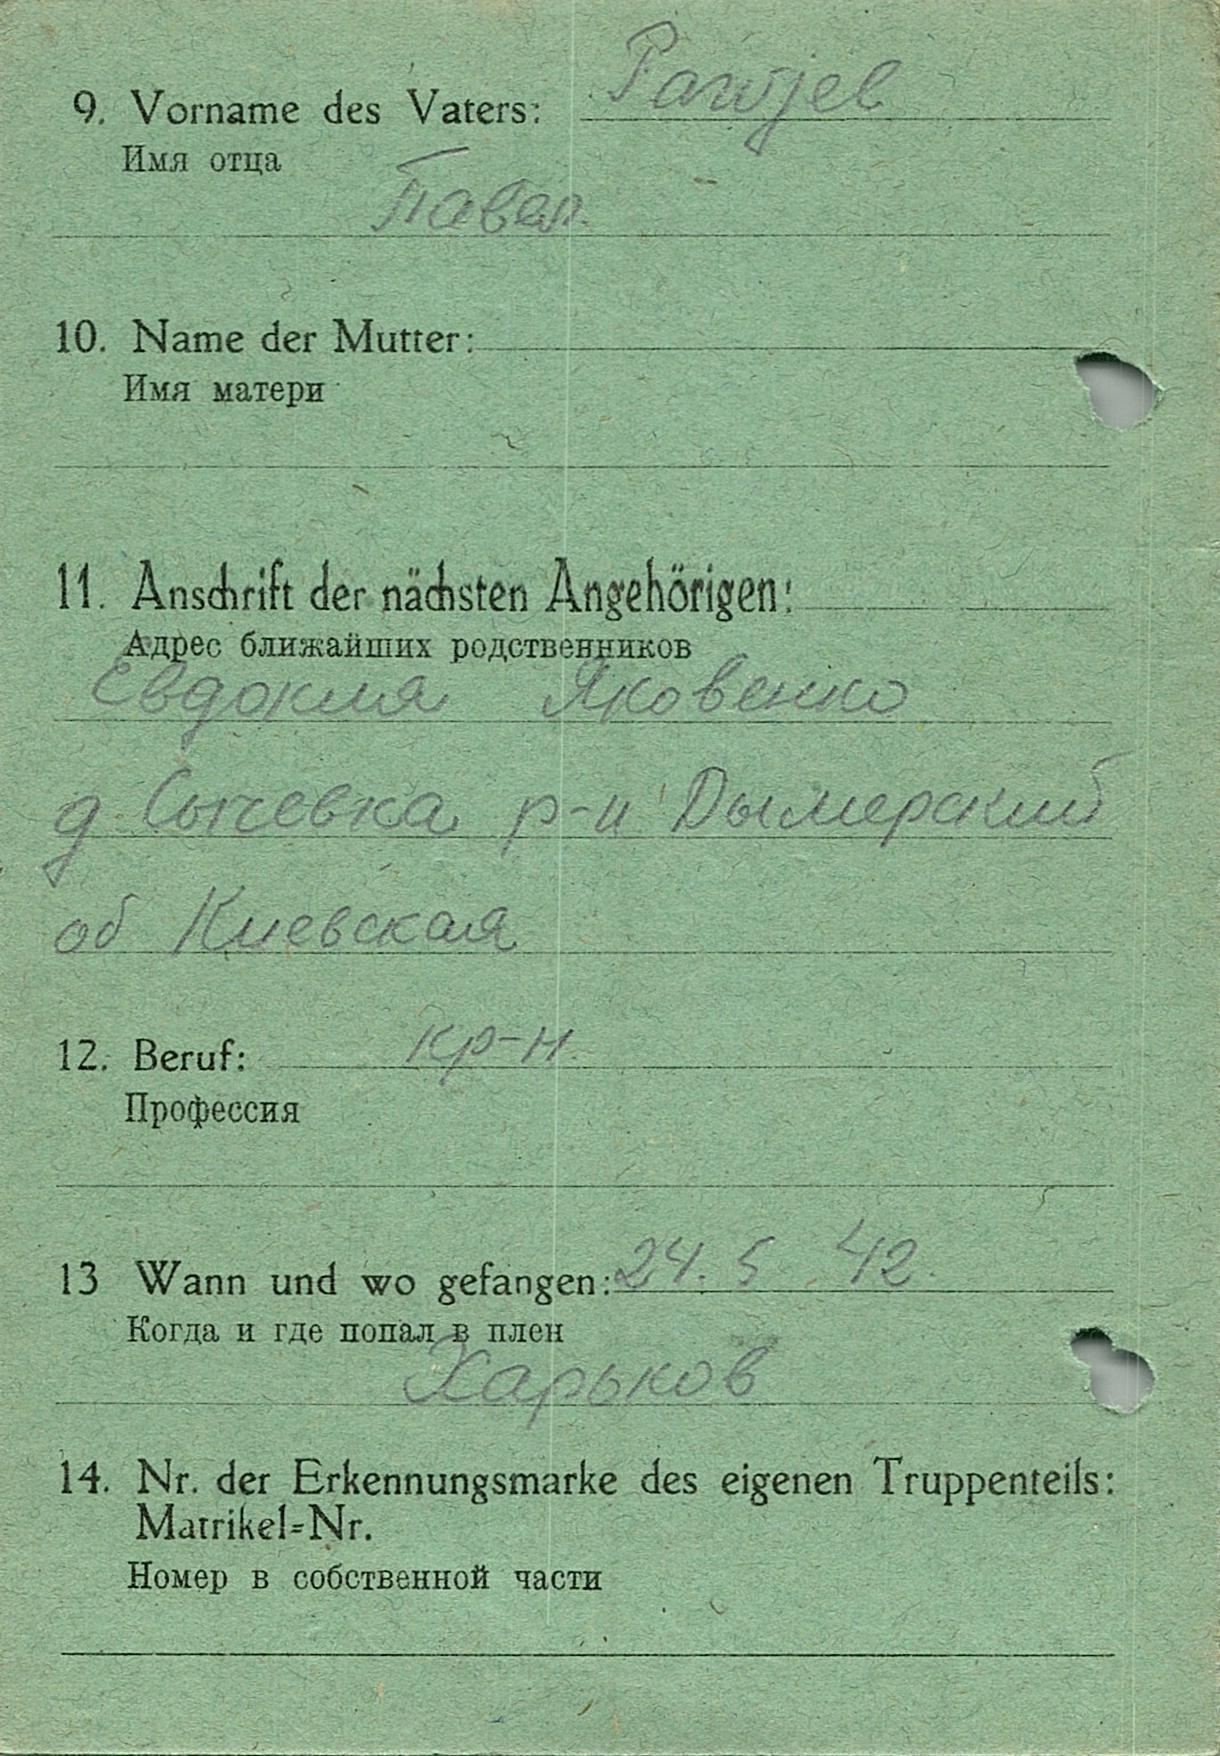 9. Vorname des Vaters: Pawjel
Имя отца
Павел.
10. Name der Mutter:
Имя матери
11. Anschrift der nächsten Angehörigen:
Адрес ближайших родственников
Евдокия Яковенко
д Сычевка р-н Дымерский
об Киевская
12. Beruf: кр-н
Профессия
13 Wann und wo gefangen: 24. 5 42.
Когда и где попал в плен
Харьков
14. Nr. der Erkennungsmarke des eigenen Truppenteils:
Matrikel=Nr.
Номер в собственной части